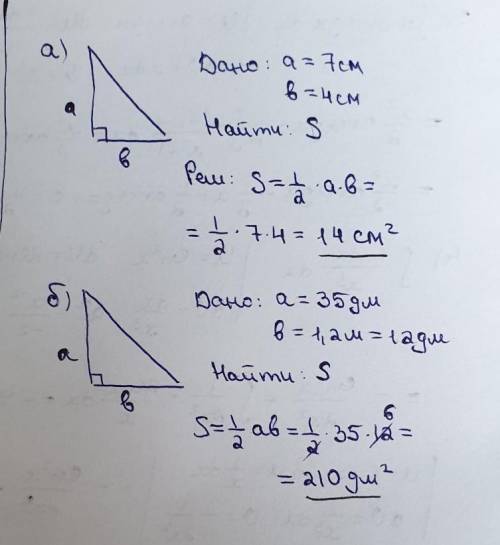 а)
Дано: а = 7см
в = 4см
Найти: S
а
в
Реш: S = 1/2 · а · в =
= 1/2 · 7 · 4 = 14 см²
б)
Дано: а = 35дм
в = 1,2м = 12дм
Найти: S
а
в
S = 1/2 ав = 1/2 · 35 · 12 6 =
= 210 дм²